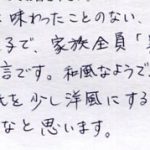 味わったことのない、
子で、家族全員「
言です。和風なようで、
を少し洋風にする
なと思います。